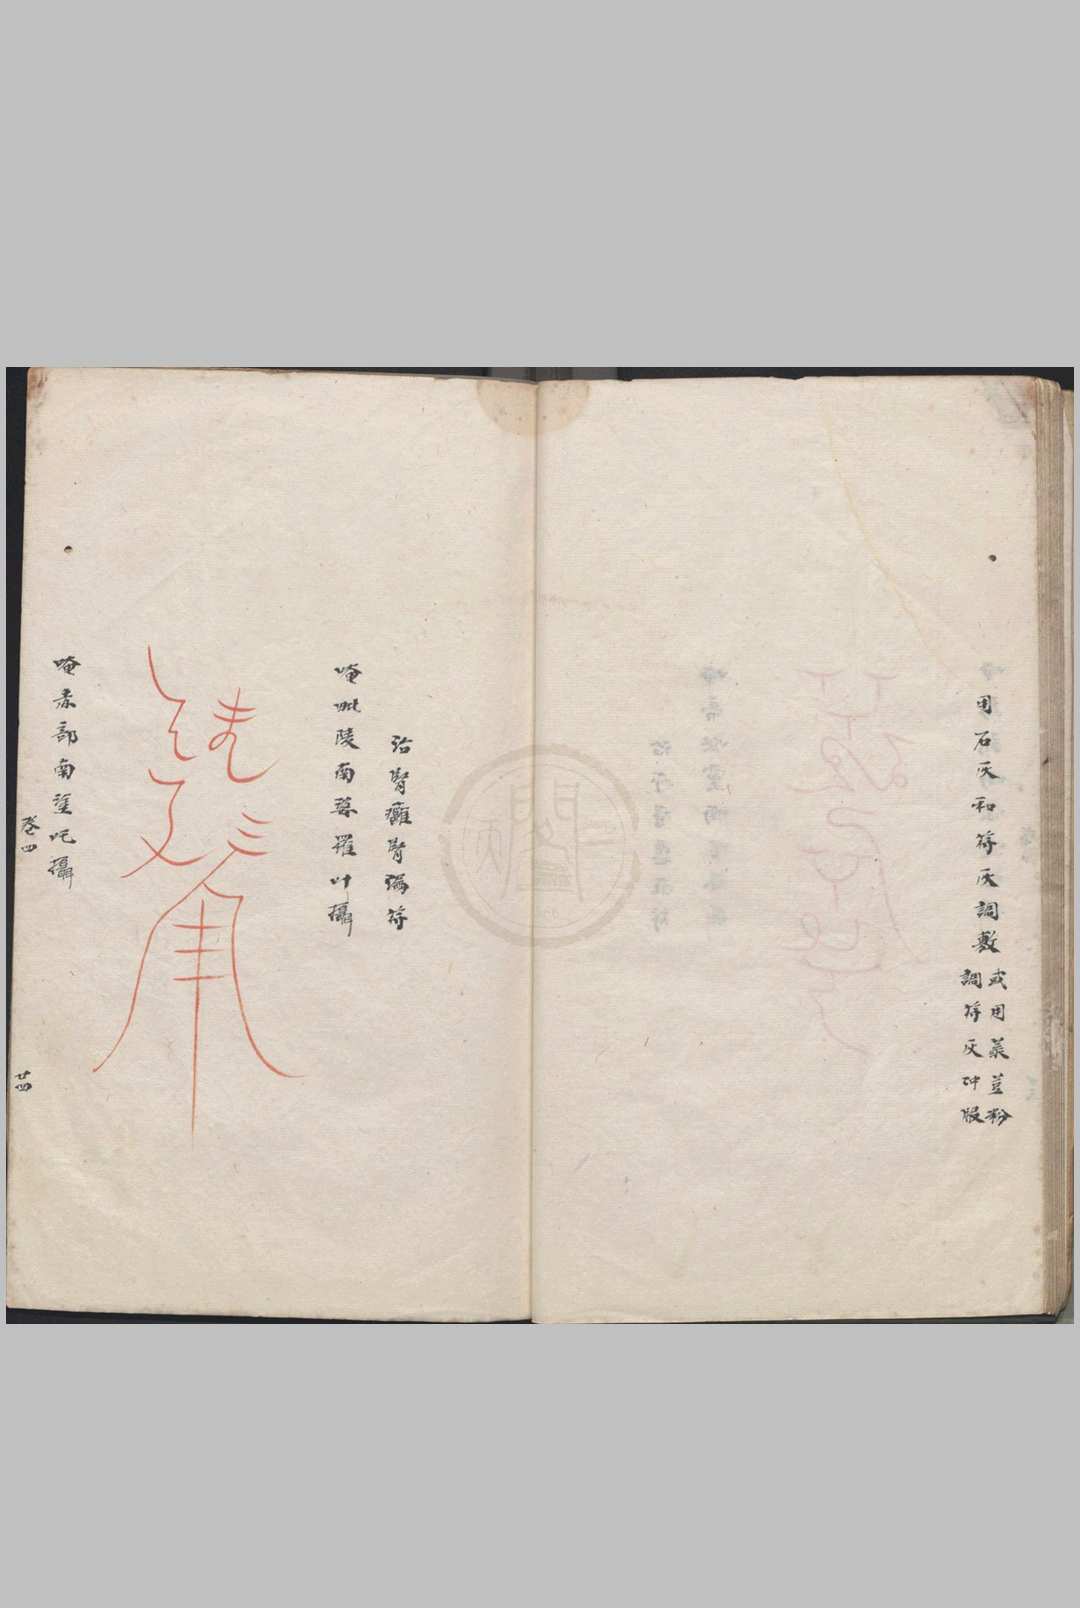 用石灰和符灰調敷
或用菉荳粉
調符灰冲服
治腎癰腎漏符
唵毗陵南
羅叶攝
唵
部南
吒攝
卷四
廿四